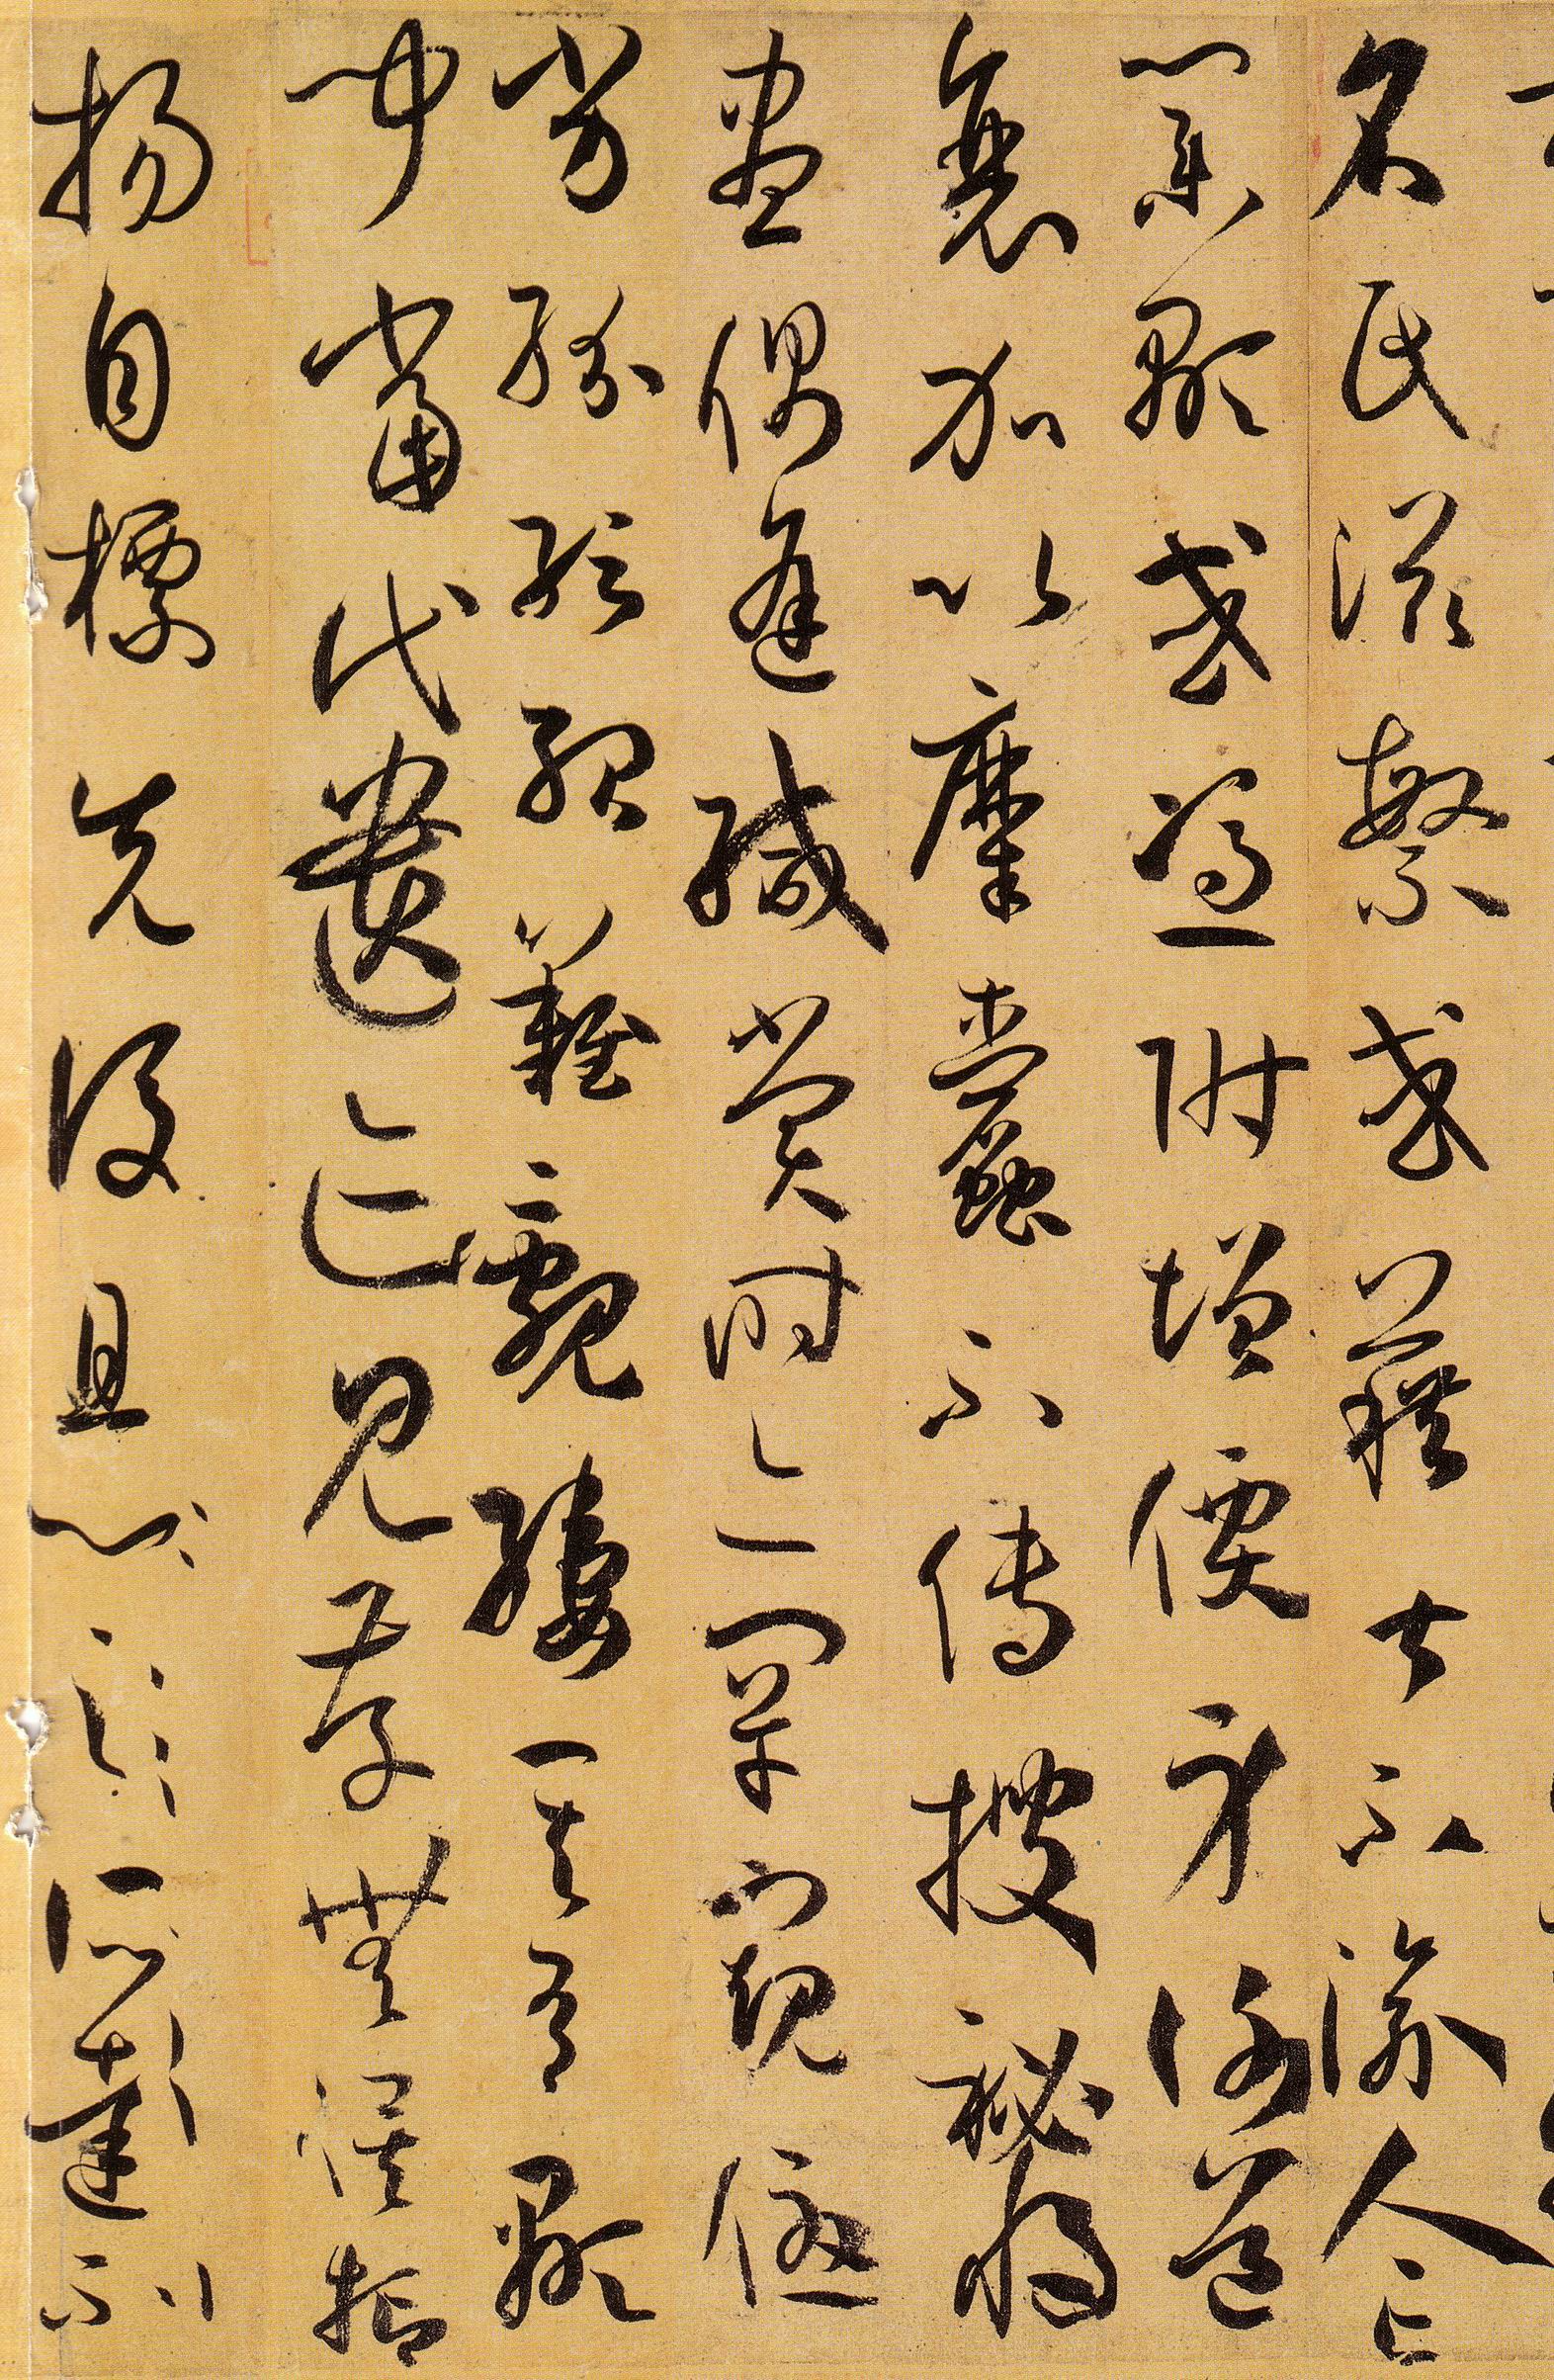 名氏滋繁或藉甚不渝人亡
業顯或憑附增價身謝道
衰加以糜蠹不傳搜祕將
盡偶逢緘賞時亦罕窺優
劣紛紜殆難覼縷其有顯
聞當代遺迹見存無俟抑
揚自標先後且心之所達不